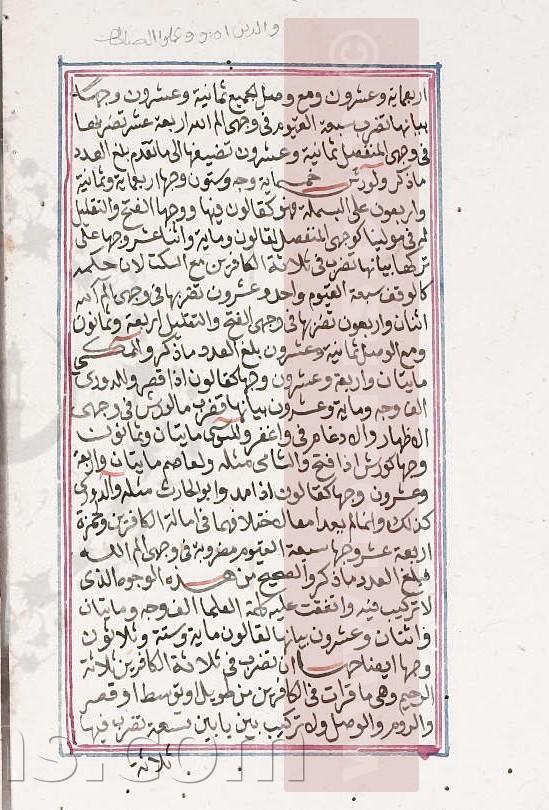 والذين امنو وعملوا الصالحات
اربعماية وعشرون ومع وصل الجميع ثمانية وعشرون وجها
بيانها تضرب سبعة القيوم في وجهي الم الله اربعة عشر تضربها
في وجهي المنفصل ثمانية وعشرون تضيفها الى ما تقدم بلغ العدد
ما ذكر ولورش خمسماية وجه وستون وجها اربعماية وثمانية
واربعون على البسملة هو كقالون فيها ووجها الفتح والتقليل
له في مولينا كوجهي المنفصل لقالون وماية واثنا عشر وجها على
تركها بيانها تضرب في ثلاثة الكافرين مع السكت لان حكمه
كالوقف سبعة القيوم واحد وعشرون تضربها في وجهي الم الله
اثنان واربعون تضربها في وجهي الفتح والتقليل اربعة وثمانون
ومع الوصل ثمانية وعشرون بلغ العدد ما ذكر وللمكي
مايتان واربعة وعشرون وجها كقالون اذا قصر وللدورى
الف وجه وماية وعشرون بيانها تضرب ما لورش في وجهى
الاظهار والادغام في واغفر وللسوسى مايتان وثمانون
وجها كورش اذا فتح وللشامى مثله ولعاصم مايتان واربعة
وعشرون وجها كقالون اذا مد وابو الحارث مثله والدورى
كذلك وانما لم يعد معه لاختلافهما في امالة الكافرين ولحمزة
اربعة عشر وجها سبعة القيوم مضروبة في وجهى الم الله
فبلغ العدد ما ذكر والصحيح من هذه الوجوه الذى
لا تركيب فيه واتفقت عليه كلمة العلما الف وجه ومايتان
واثنان وعشرون بيانها لقالون ماية وستة وثلاثون
وجها ايضاحها ان تضرب في ثلاثة الكافرين ثلاثة
الرحيم وهي ما قرات في الكافرين من طويل وتوسط او قصر
والروم والوصل ولا تركيب بين بابين تسعة تضرب فيها
ثلاثة